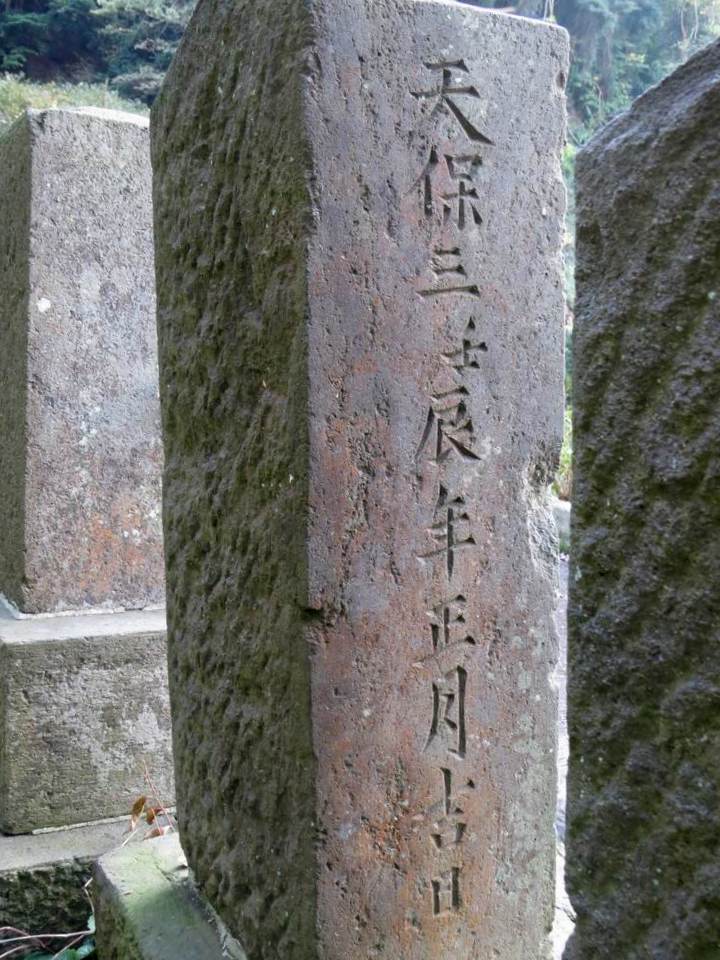 天保三壬辰年正月吉日